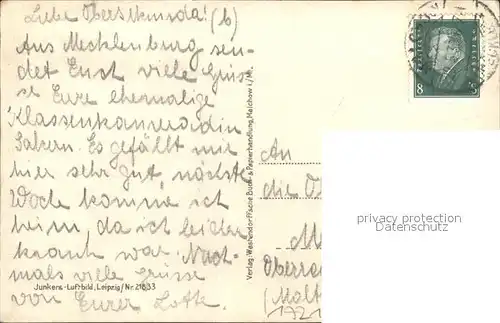 Liebe Obersekunda! (b)
Aus Mecklenburg sen-
det Euch viele Grüs-
se Eure ehemalige
Klassenkameradin
Es gefällt mir
hier sehr gut, nächste
Woche komme ich
heim, da ich leider
krank war. Noch-
mals viele Grüsse
von Eurer Lotte.
Junkers-Luftbild, Leipzig/Nr. 21633
Verlag: Westendorff'sche Buch- & Papierhandlung, Malchow i/M.
DEUTSCHES REICH
8 8
An
die O
Oberrea
(Molt
1921
privacy protection
Datenschutz